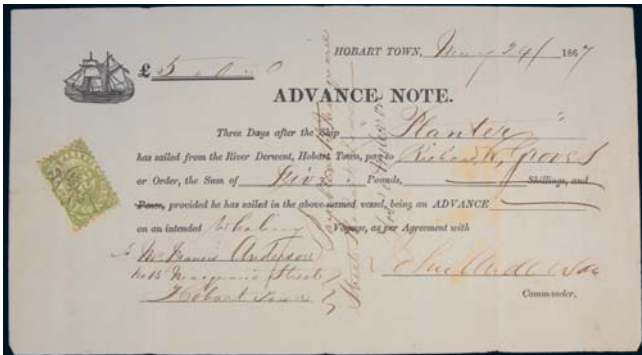 HOBART TOWN, May 24/ 1867
£ 5 - 0 - 0
ADVANCE NOTE.
Three Days after the Ship "Planter"
has sailed from the River Derwent, Hobart Town, pay to Richard Groves
or Order, the Sum of Five Pounds, Shillings, and
Pence, provided he has sailed in the above-named vessel, being an ADVANCE
on an intended Whaling Voyage, as per Agreement with
To Mr Anderson
No 15 Macquarie Street
Hobart Town
Commander,